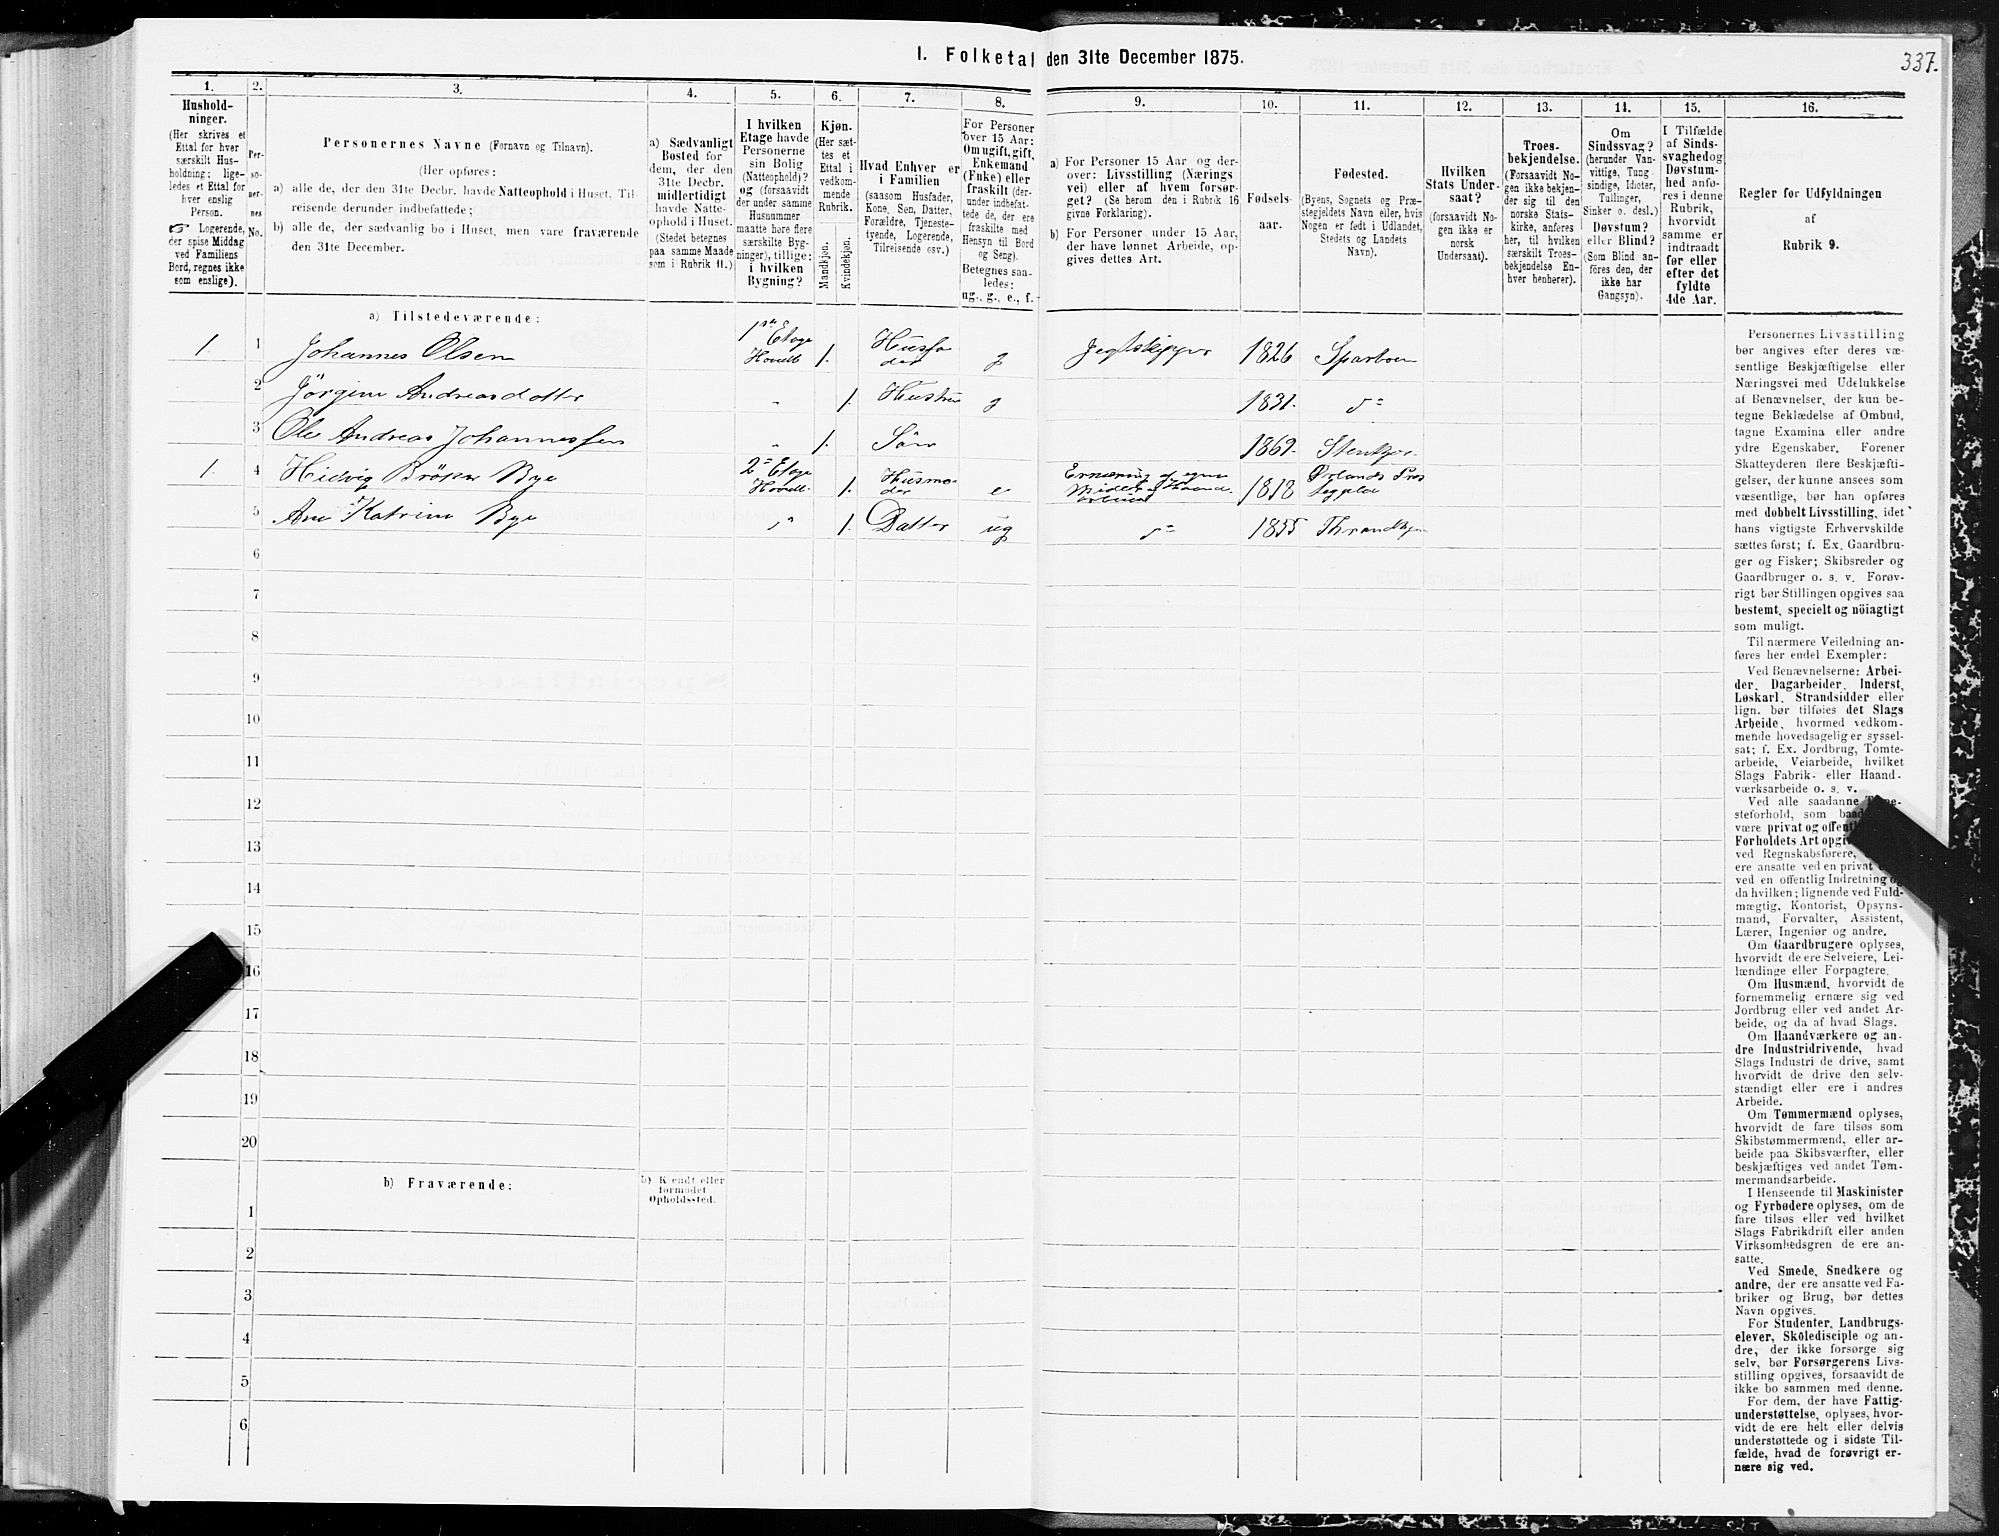 I. Folketal den 31te December 1875.
337.
1.
Hushold-
ninger.
(Her skrives et
Ettal for hver
særskilt Hus-
holdning; lige-
ledes et Ettal for
hver enslig
Person.
☞ Logerende,
der spise Middag
ved Familiens
Bord, regnes ikke
som enslige).
2.
Per-
so-
ner-
nes
No.
3.
Personernes Navne (Fornavn og Tilnavn).
(Her opføres:
a) alle de, der den 31te Decbr. havde Natteophold i Huset, Til-
reisende derunder indbefattede;
b) alle de, der sædvanlig bo i Huset, men vare fraværende
den 31te December.
4.
a) Sædvanligt
Bosted for
dem, der den
31te Decbr.
midlertidigt
havde Natte-
ophold i Huset.
(Stedet betegnes
paa samme Maade
som i Rubrik 11.)
5.
I hvilken
Etage havde
Personerne
sin Bolig
(Natteophold)?
og (forsaavidt
der under samme
Husnummer
maatte høre flere
særskilte Byg-
ninger), tillige:
i hvilken
Bygning?
6.
Kjøn.
(Her sæt-
tes et
Ettal i
vedkom-
mende
Rubrik.
Mandkjøn.
Kvindekjøn.
7.
Hvad Enhver er
i Familien
(saasom Husfader,
Kone, Søn, Datter,
Forældre, Tjeneste-
tyende, Logerende,
Tilreisende osv.)
8.
For Personer
over 15 Aar:
Om ugift, gift,
Enkemand
(Enke) eller
fraskilt (der-
under indbefat-
tede de, der ere
fraskilte med
Hensyn til Bord
og Seng).
Betegnes saa-
ledes:
ug., g., e., f.
9.
a) For Personer 15 Aar og der-
over: Livsstilling (Nærings
vei) eller af hvem forsør-
get? (Se herom den i Rubrik 16
givne Forklaring).
b) For Personer under 15 Aar,
der have lønnet Arbeide, op-
gives dettes Art.
10.
Fødsels-
aar.
11.
Fødested.
(Byens, Sognets og Præ-
stegjeldets Navn eller, hvis
Nogen er født i Udlandet,
Stedets og Landets
Navn).
12.
Hvilken
Stats Under-
saat?
(forsaavidt No-
gen ikke er
norsk
Undersaat).
13.
Troes-
bekjendelse.
(Forsaavidt No-
gen ikke bekjen-
der sig til den
norske Stats-
kirke, anføres
her, til hvilken
særskilt Troes-
bekjendelse En-
hver henhører).
14.
Om
Sindssvag?
(herunder Van-
vittige, Tung
sindige, Idioter,
Tullinger,
Sinker o. desl.)
Døvstum?
eller Blind?
(Som Blind an-
føres den, der
ikke har
Gangsyn).
15.
I Tilfælde
af Sinds-
svaghed og
Døvstum-
hed anfø-
res i denne
Rubrik,
hvorvidt
samme er
indtraadt
før eller
efter det
fyldte
4de Aar.
16.
Regler for Udfyldningen
af
Rubrik 9.
a) Tilstedeværende:
1. 1 Johannes Olsen 1ste Etage Hovedb 1. Husfader g Jegtskipper 1826 Sparboen
2 Jörgine Andreasdatter „ 1. Hustru g 1831. do
3 Ole Andreas Johannessen „ 1. Sön 1869. Stenkjær
1. 4 Hedvig Bye 2den Etage Hovedb. 1. Husmoder e Ernæring af egne Midler og Haandarbeide 1818 Ørlands Præstegjeld
5 Ane Katrine Bye „ 1. Datter ug do 1855 Throndhjem
6
7
8
9
10
11
12
13
14
15
16
17
18
19
20
b) Fraværende:
b) Kjendt eller
formodet
Opholdssted.
1
2
3
4
5
6
Personernes Livsstilling
bør angives efter deres væ-
sentlige Beskjæftigelse eller
Næringsvei med Udelukkelse
af Benævnelser, der kun be-
tegne Beklædelse af Ombud,
tagne Examina eller andre
ydre Egenskaber. Forener
Skatteyderen flere Beskjæfti-
gelser, der kunne ansees som
væsentlige, bør han opføres
med dobbelt Livsstilling, idet
hans vigtigste Erhvervskilde
sættes først; f. Ex. Gaardbru-
ger og Fisker; Skibsreder og
Gaardbruger o. s. v. Forøv-
rigt bør Stillingen opgives saa
bestemt, specielt og nöiagtigt
som muligt.
Til nærmere Veiledning an-
føres her endel Exempler:
Ved Benævnelserne: Arbei-
der, Dagarbeider, Inderst,
Løskarl, Strandsidder eller
lign. bør tilføies det Slags
Arbeide, hvormed vedkom-
mende hovedsagelig er syssel-
sat; f. Ex. Jordbrug, Tomte-
arbeide, Veiarbeide, hvilket
Slags Fabrik- eller Haand-
værksarbeide o. s. v.
Ved alle saadanne Tjene-
steforhold, som baade
være privat og offentl
Forholdets Art opgiv
ved Regnskabsførere,
ere ansatte ved en privat
ved en offentlig Indretning og
da hvilken; lignende ved Fuld-
mægtig, Kontorist, Opsyns-
mand, Forvalter, Assistent,
Lærer, Ingeniør og andre.
Om Gaardbrugere oplyses,
hvorvidt de ere Selveiere, Lei-
lændinge eller Forpagtere.
Om Husmænd, hvorvidt de
fornemmelig ernære sig ved
Jordbrug eller ved andet Ar-
beide, og da af hvad Slags.
Om Haandværkere og an-
dre Industridrivende, hvad
Slags Industri de drive, samt
hvorvidt de drive den selv-
stændigt eller ere i andres
Arbeide.
Om Tømmermænd oplyses,
hvorvidt de fare tilsøs som
Skibstømmermænd, eller ar-
beide paa Skibsværfter, eller
beskjæftiges ved andet Tøm-
mermandsarbeide.
I Henseende til Maskinister
og Fyrbødere oplyses, om de
fare tilsøs eller ved hvilket
Slags Fabrikdrift eller anden
Virksomhedsgren de ere an-
satte.
Ved Smede, Snedkere og
andre, der ere ansatte ved Fa-
briker og Brug, bør dettes
Navn opgives.
For Studenter, Landbrugs-
elever, Skoledisciple og an-
dre, der ikke forsørge sig
selv, bør Forsørgerens Livs-
stilling opgives, forsaavidt de
ikke bo sammen med denne.
For dem, der have Fattig-
understøttelse, oplyses, hvor-
vidt de ere helt eller delvis
understøttede og i sidste Til-
fælde, hvad de forøvrigt er-
nære sig ved.